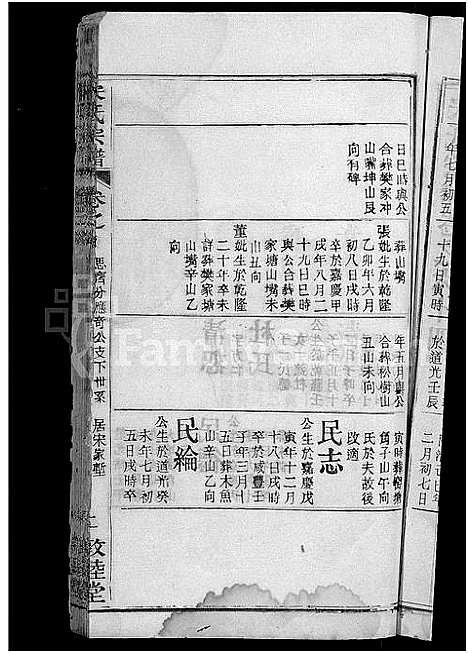 日巳時與公
合葬樊家冲
山嘴坤山艮
向有碑
葬山嘴
張妣生於乾隆
乙卯年六月
初八日戌時
卒於嘉慶甲
戌年八月二
十九日巳時
與公合葬樊
家塘山嘴未
山丑向
董妣生於乾隆
二十年卒未
詳葬樊家塘
山嘴辛山乙
向
年五月與公
合葬松樹山
丑山未向
寅時葬
角子山午向
氏於夫故後
改適
民志
公生於嘉慶戊
寅年十二月
十八日戌時
卒於咸豐壬
子年三月十
五日葬木魚
山辛山乙向
民綸
公生於道光癸
未年七月初
五日戌時卒
宋氏宗譜
卷之
思濟分應奇公支下世系
居宋家塹
敦睦堂
年七月初五
十九日寅時
於道光壬辰
二月初七日